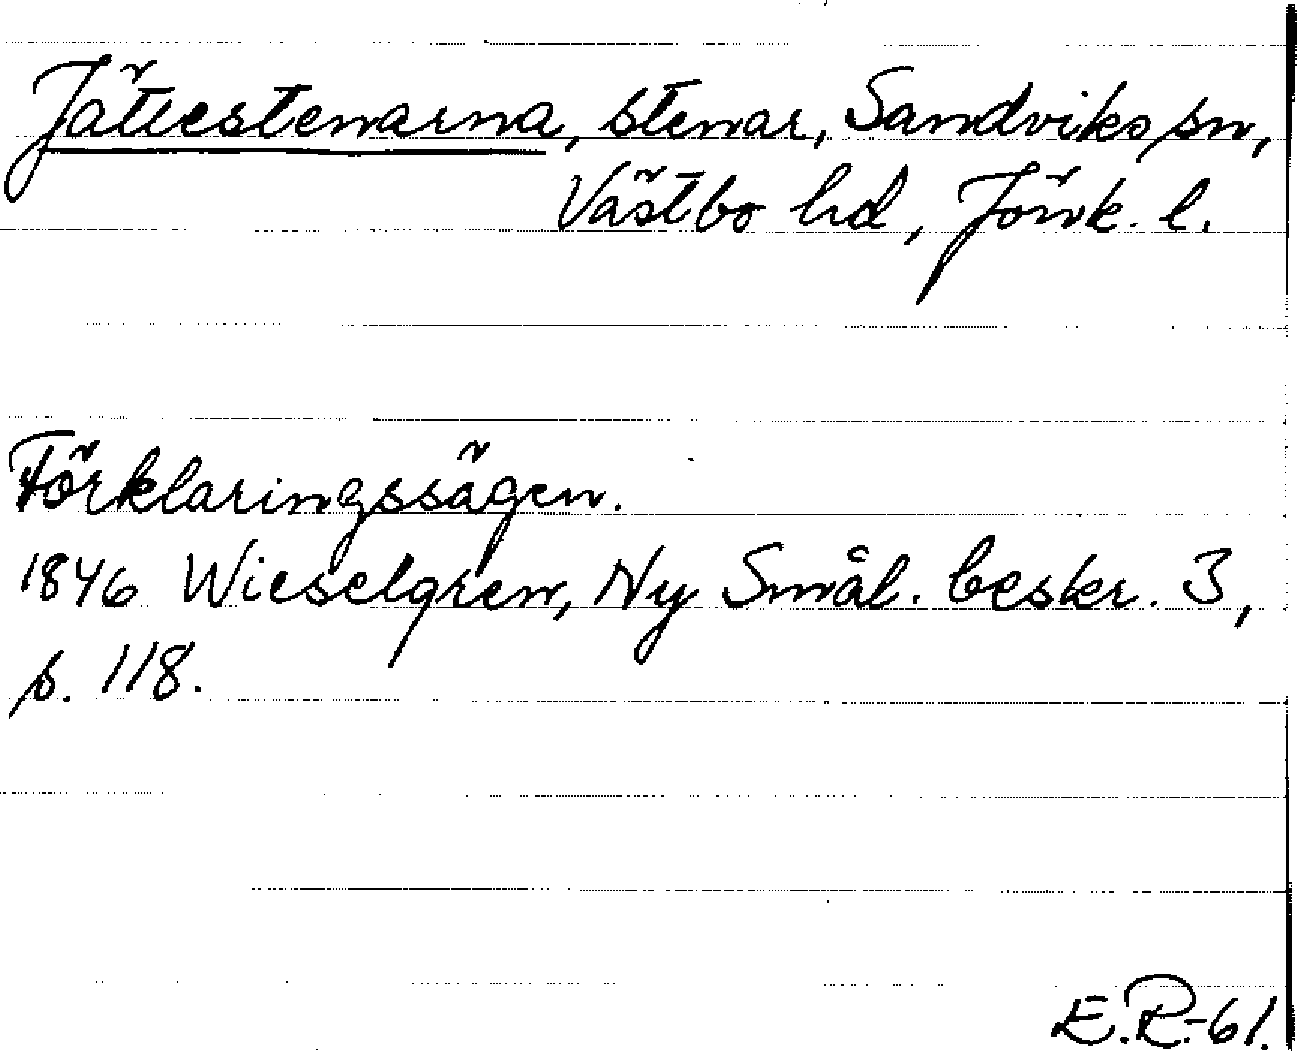 Jättestenarna, stenar, Sandviks sn,
Västbo hd, Jönk. l.
Förklaringssägen.
1846 Wieselgren, Ny Smål. beskr. 3,
s. 118.
E.R.-61.